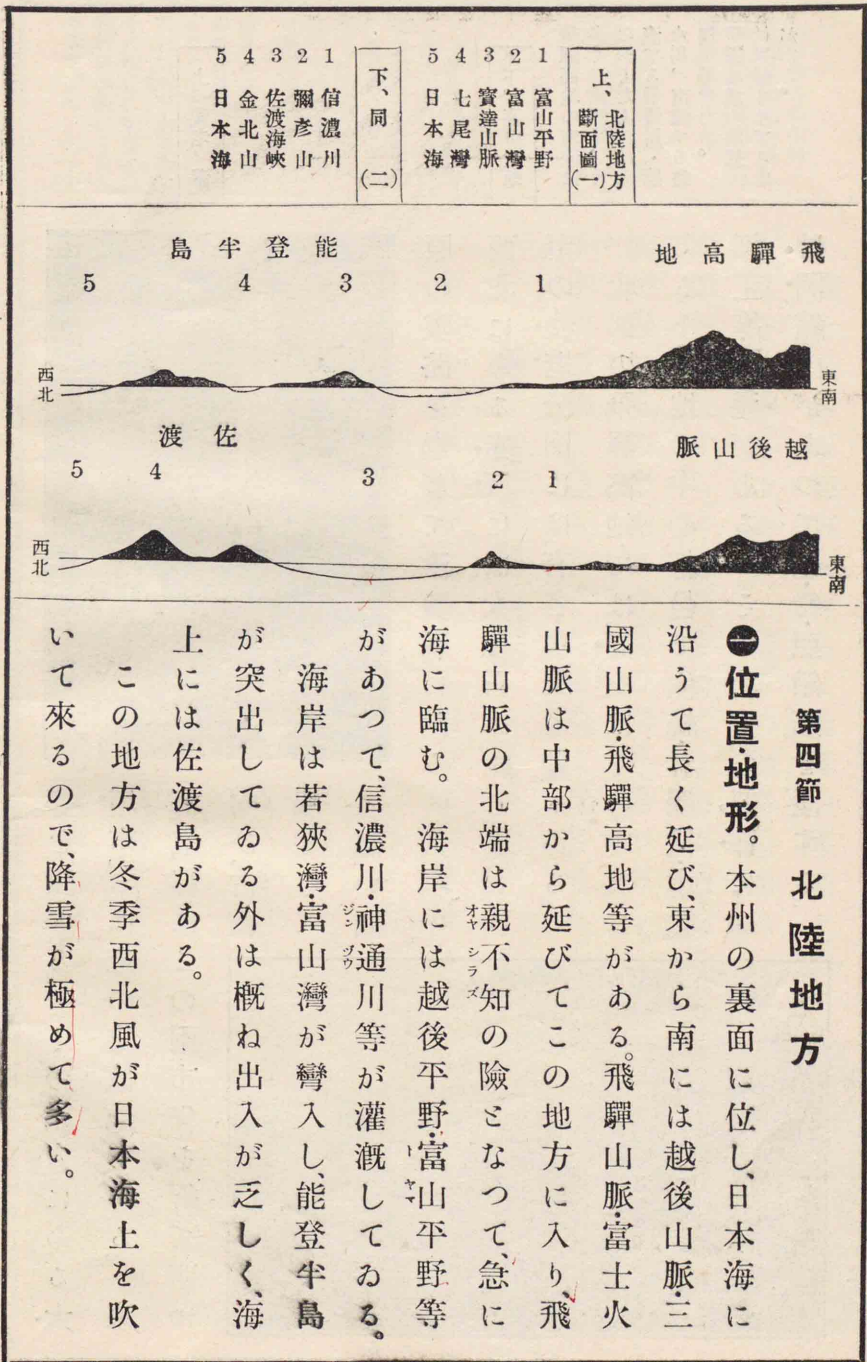 上、北陸地方
斷面圖(一)
1 富山平野
2 富山灣
3 寶達山脈
4 七尾灣
5 日本海
下、同 (二)
1 信濃川
2 彌彥山
3 佐渡海峽
4 金北山
5 日本海
飛驒高地
能登半島
1
2
3
4
5
東南
西北
越後山脈
佐渡
1
2
3
4
5
東南
西北
第四節 北陸地方
㊀位置・地形。本州の裏面に位し、日本海に
沿うて長く延び、東から南には越後山脈・三
國山脈・飛驒高地等がある。飛驒山脈・富士火
山脈は中部から延びてこの地方に入り、飛
驒山脈の北端は親不知の險となつて、急に
オヤシラズ
海に臨む。海岸には越後平野・富山平野等
トヤマ
があつて、信濃川・神通川等が灌漑してゐる。
ジンヅウ
海岸は若狹灣・富山灣が彎入し、能登半島
が突出してゐる外は概ね出入が乏しく、海
上には佐渡島がある。
この地方は冬季西北風が日本海上を吹
いて來るので、降雪が極めて多い。